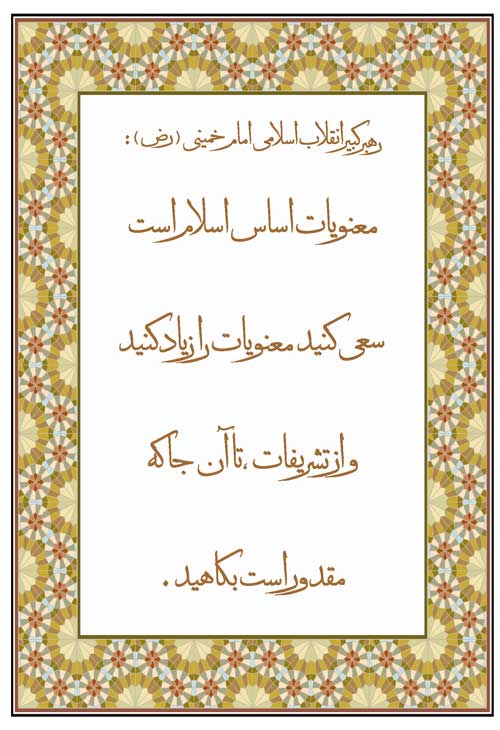 رهبر کبیر انقلاب اسلامی امام خمینی (رض) :
معنویات اساس اسلام است
سعی کنید معنویات را زیاد کنید
و از تشریفات ، تا آن جا که
مقدور است بکاهید .